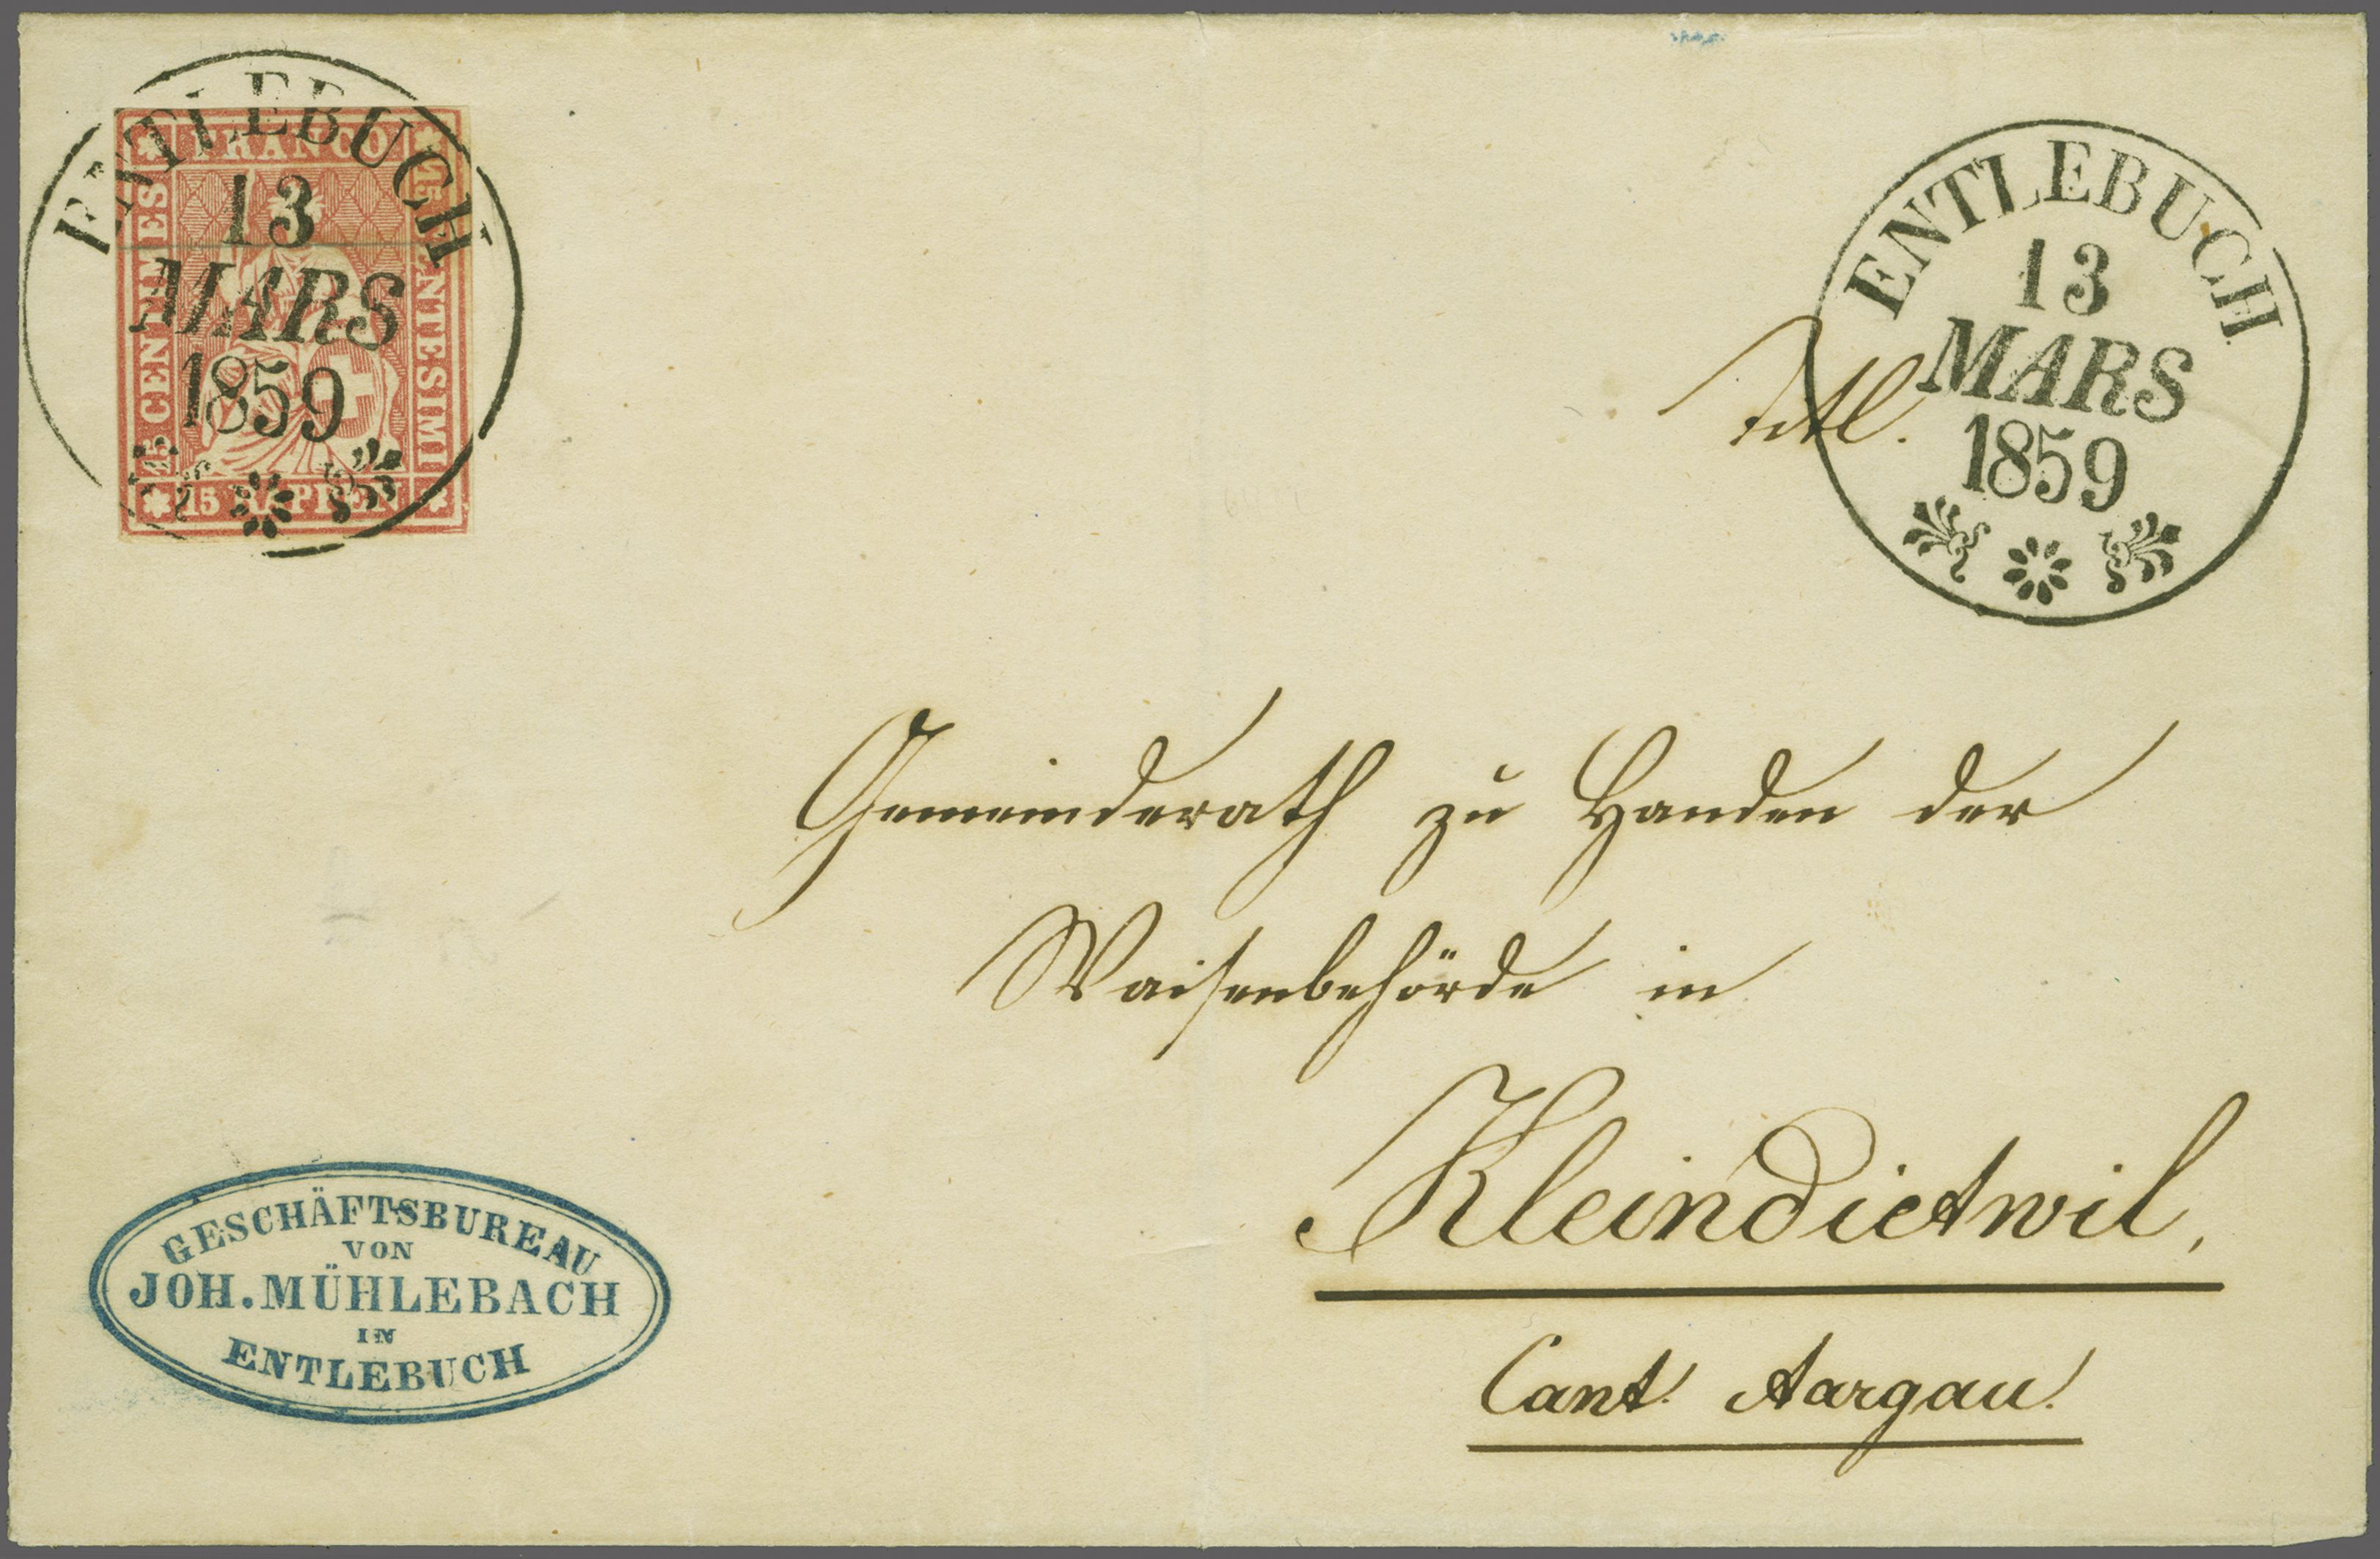 ENTLEBUCH
13
MARS
1859
FRANCO
15 CENTIMES
15 CENTESIMI
15 RAPPEN
ENTLEBUCH
13
MARS
1859
Titl.
Gemeinderath zu Handen der
Waisenbehörde in
Kleindietwil.
Cant. Aargau.
GESCHÄFTSBUREAU
VON
JOH. MÜHLEBACH
IN
ENTLEBUCH